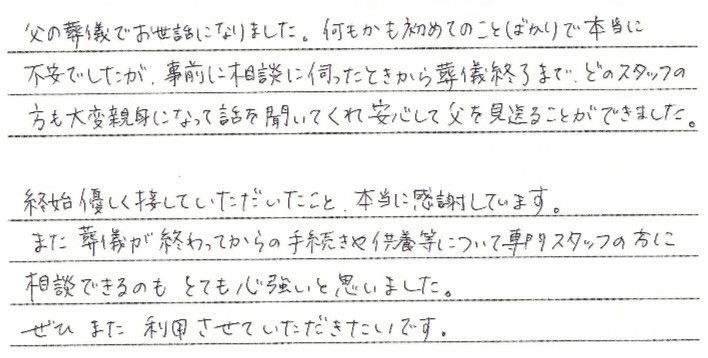 父の葬儀でお世話になりました。何もかも初めてのことばかりで本当に
不安でしたが、事前に相談に伺ったときから葬儀終了まで、どのスタッフの
方も大変親身になって話を聞いてくれ安心して父を見送ることができました。
終始優しく接していただいたこと、本当に感謝しています。
また葬儀が終わってからの手続きや供養等について専門スタッフの方に
相談できるのもとても心強いと思いました。
ぜひまた利用させていただきたいです。